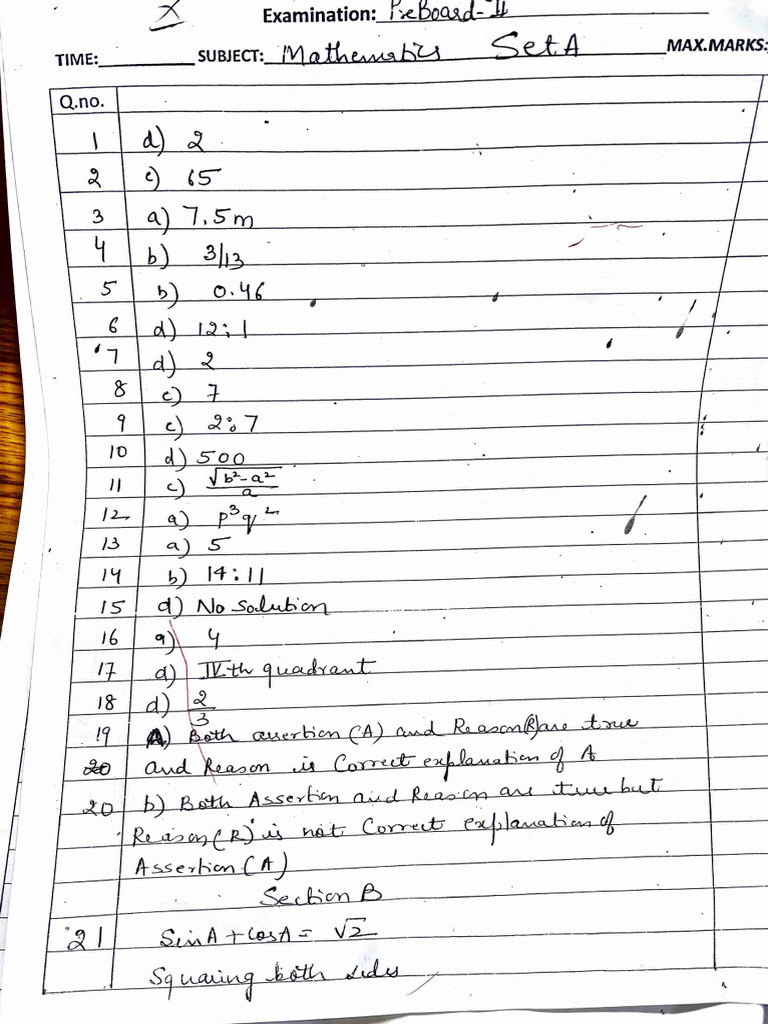 X
Examination: PreBoard-II
TIME: SUBJECT: Mathematics Set A MAX.MARKS:
Q.no.
1 d) 2
2 c) 65
3 a) 7.5m
4 b) 3/13
5 b) 0.46
6 d) 12:1
7 d) 2
8 c) 7
9 c) 2:7
10 d) 500
11 c) √b²-a²/a
12 a) p³q²
13 a) 5
14 b) 14:11
15 d) No solution
16 a) 4
17 d) IVth quadrant
18 d) 2/3
19 A) Both assertion (A) and Reason(R) are true
20 and Reason is Correct explanation of A
20 b) Both Assertion and Reason are true but
Reason (R) is not Correct explanation of
Assertion (A)
Section B
21 SinA + CosA = √2
Squaring both sides